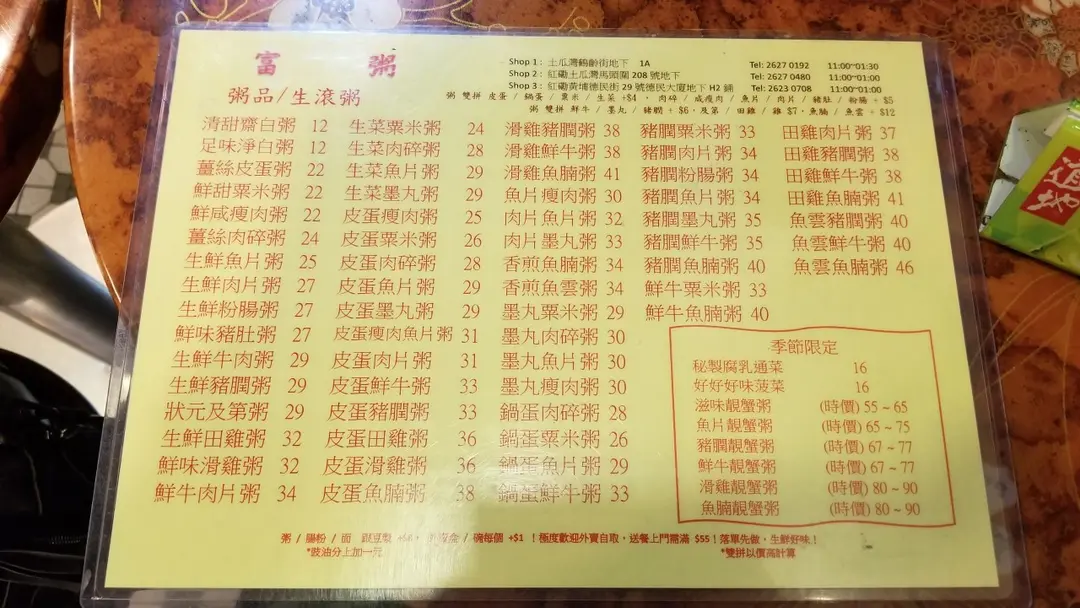 富 粥
粥品/生滾粥
Shop 1 : 土瓜灣鶴齡街地下 1A Tel: 2627 0192 11:00~01:30
Shop 2 : 紅磡土瓜灣馬頭圍 208 號地下 Tel: 2627 0480 11:00~01:00
Shop 3 : 紅磡黃埔德民街 29 號德民大廈地下 H2 鋪 Tel: 2623 0708 11:00~01:00
粥 雙拼 皮蛋 / 鍋蛋 / 粟米 / 生菜 +$4 , 肉碎 / 咸瘦肉 / 魚片 / 肉片 / 豬肚 / 粉腸 + $5
粥 雙拼 鮮牛 / 墨丸 / 豬膶 + $6, 及第 / 田雞 / 雞 $7, 魚腩 / 魚雲 + $12
清甜齋白粥 12
足味淨白粥 12
薑絲皮蛋粥 22
鮮甜粟米粥 22
鮮咸瘦肉粥 22
薑絲肉碎粥 24
生鮮魚片粥 25
生鮮肉片粥 27
生鮮粉腸粥 27
鮮味豬肚粥 27
生鮮牛肉粥 29
生鮮豬膶粥 29
狀元及第粥 29
生鮮田雞粥 32
鮮味滑雞粥 32
鮮牛肉片粥 34
生菜粟米粥 24
生菜肉碎粥 28
生菜魚片粥 29
生菜墨丸粥 29
皮蛋瘦肉粥 25
皮蛋粟米粥 26
皮蛋肉碎粥 28
皮蛋魚片粥 29
皮蛋墨丸粥 29
皮蛋瘦肉魚片粥 31
皮蛋肉片粥 31
皮蛋鮮牛粥 33
皮蛋豬膶粥 33
皮蛋田雞粥 36
皮蛋滑雞粥 36
皮蛋魚腩粥 38
滑雞豬膶粥 38
滑雞鮮牛粥 38
滑雞魚腩粥 41
魚片瘦肉粥 30
肉片魚片粥 32
肉片墨丸粥 33
香煎魚腩粥 34
香煎魚雲粥 34
墨丸粟米粥 29
墨丸肉碎粥 30
墨丸魚片粥 30
墨丸瘦肉粥 30
鍋蛋肉碎粥 28
鍋蛋粟米粥 26
鍋蛋魚片粥 29
鍋蛋鮮牛粥 33
豬膶粟米粥 33
豬膶肉片粥 34
豬膶粉腸粥 34
豬膶魚片粥 34
豬膶墨丸粥 35
豬膶鮮牛粥 35
豬膶魚腩粥 40
鮮牛粟米粥 33
鮮牛魚腩粥 40
田雞肉片粥 37
田雞豬膶粥 38
田雞鮮牛粥 38
田雞魚腩粥 41
魚雲豬膶粥 40
魚雲鮮牛粥 40
魚雲魚腩粥 46
季節限定
秘製腐乳通菜 16
好好好味菠菜 16
滋味靚蟹粥 (時價) 55 ~ 65
魚片靚蟹粥 (時價) 65 ~ 75
豬膶靚蟹粥 (時價) 67 ~ 77
鮮牛靚蟹粥 (時價) 67 ~ 77
滑雞靚蟹粥 (時價) 80 ~ 90
魚腩靚蟹粥 (時價) 80 ~ 90
粥 / 腸粉 / 面 / 碗每個 +$1 ！極度歡迎外賣自取，送餐上門需滿 $55！落單先做，生鮮好味！
*豉油分上加一元 *雙拼以價高計算
道地